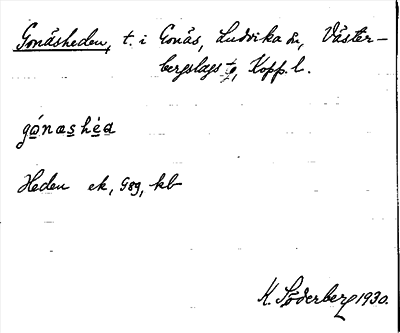 Gonäsheden, t. i Gonäs, Ludvika sn, Väster-
bergslags tg, Kopp. l.
gónəshéə
Heden ek, G89, kb
K. Söderberg 1930.